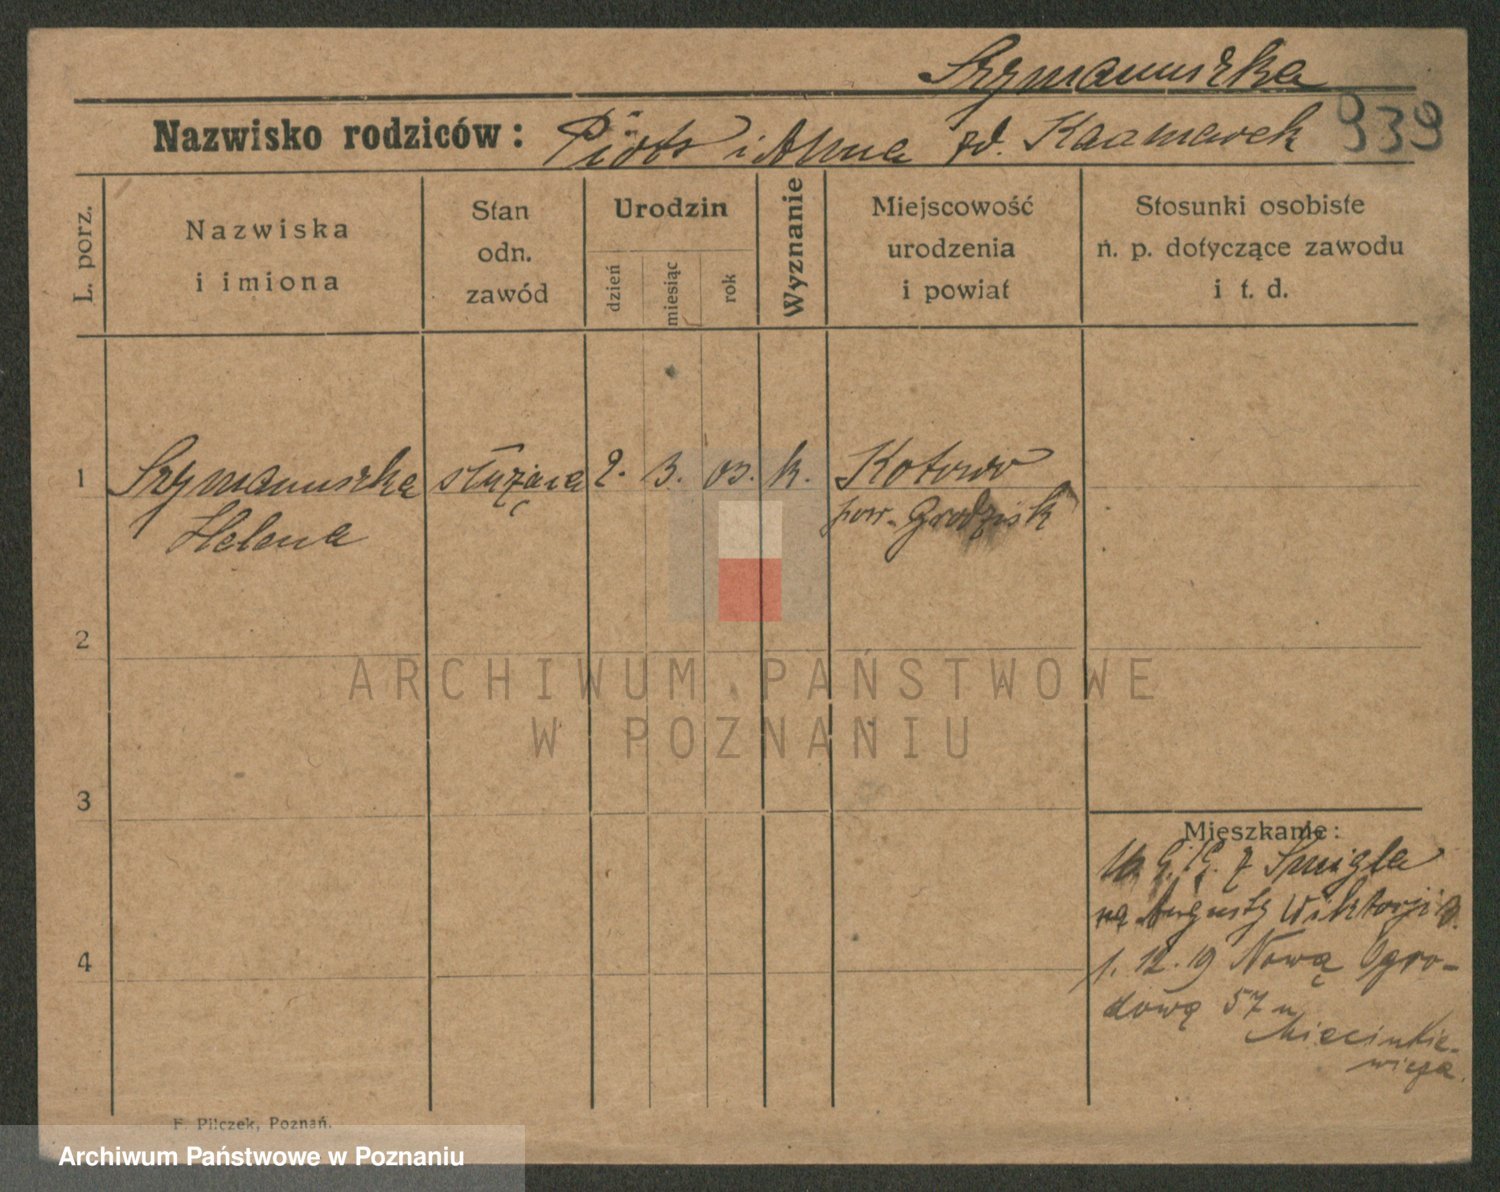 Szymanuszka
939
Nazwisko rodziców: Piotr i Anna zd. Kaczmarek
L. porz.
Nazwiska
i imiona
Stan
odn.
zawód
Urodzin
dzień
miesiąc
rok
Wyznanie
Miejscowość
urodzenia
i powiat
Stosunki osobiste
n. p. dotyczące zawodu
i t. d.
1 Szymanuszka służąca 2. 3. 03. k. Kotowo
Helena pow. Grodzisk
2
3
4
Mieszkanie:
z Śmigla
na Augusty Wiktorji 3.
1. 12. 19 Nową Ogro-
dową 57 u
Miecinkie-
wicza
F. Pilczek, Poznań.
ARCHIWUM PAŃSTWOWE
W POZNANIU
Archiwum Państwowe w Poznaniu